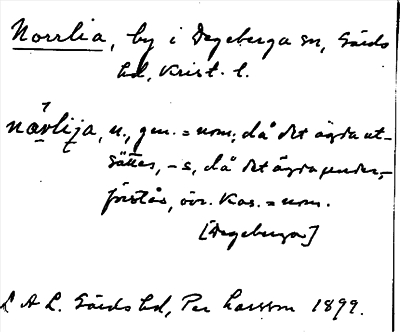 Norrlia, by i Degeberga sn, Gärds
hd, Krist. l.
nævlija, n., gen. = nom., då det ägda ut-
sättes, -s, då det ägda under-
förstås, övr. kas. = nom.
[Degeberga]
L A L. Gärds hd, Per Larsson 1899.